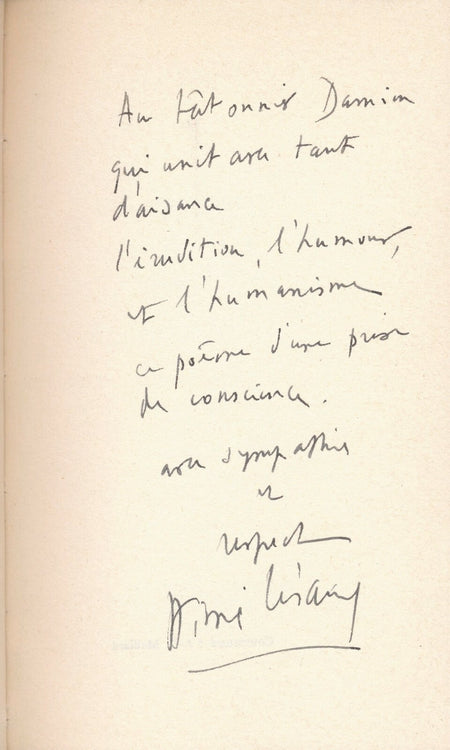 Au bâtonnier Damien
qui unit avec tant
d'aisance
l'érudition, l'humour,
et l'humanisme
ce poème d'une prise
de conscience.
avec sympathie
et
respect
Aimé Césaire